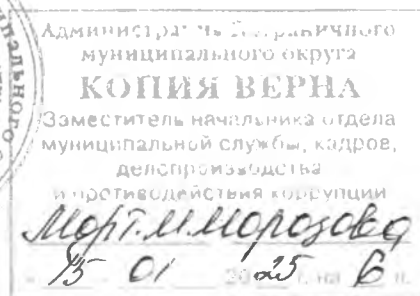 Администрация Пограничного
муниципального округа
КОПИЯ ВЕРНА
Заместитель начальника отдела
муниципальной службы, кадров,
делопроизводства
и противодействия коррупции
Т.М. Морозова
15 01 2025 г. на 6 л.